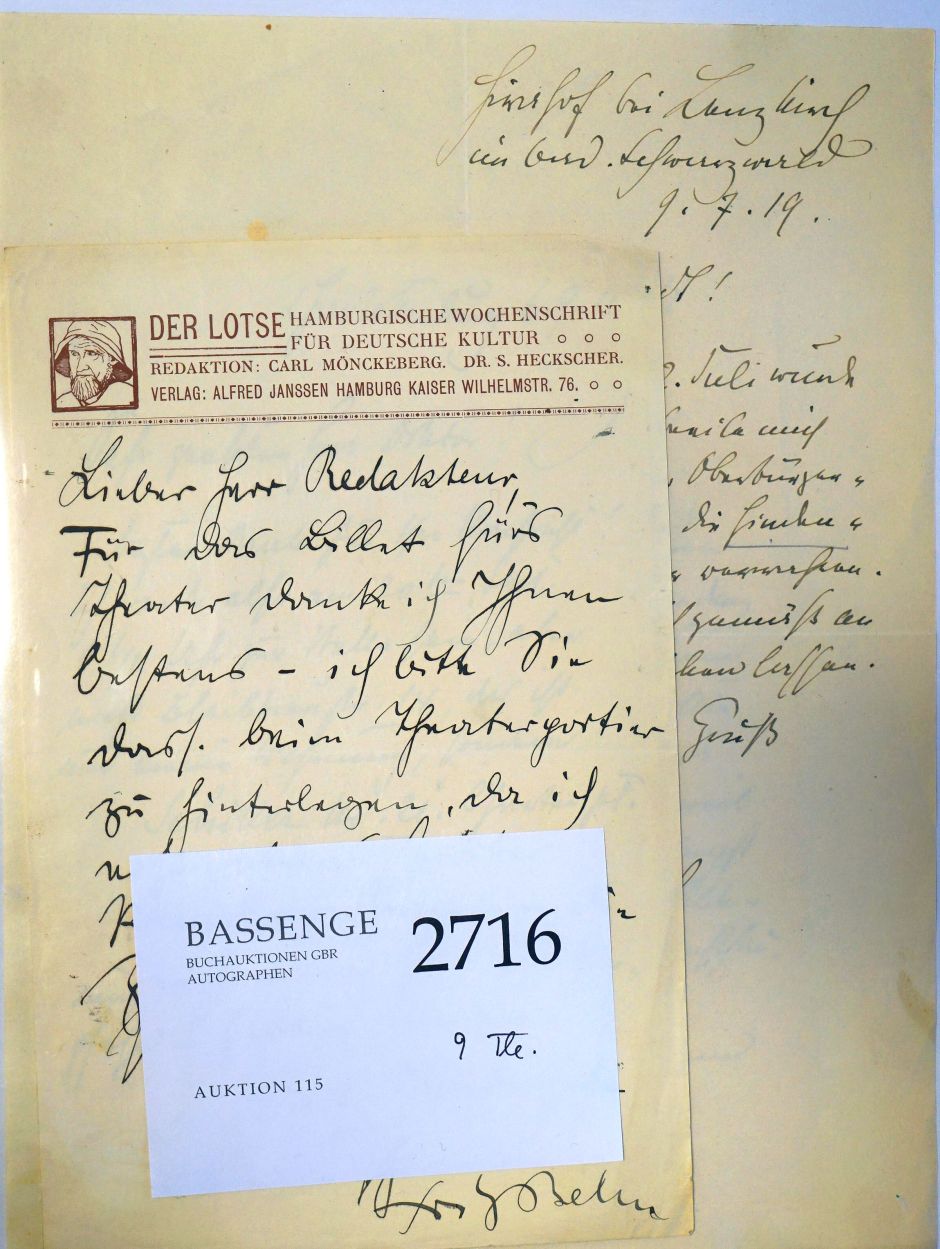 Hirrhof bei Lenzkirch
im bad. Schwarzwald
9.7.19.
. Juli wurde
beeile mich
Oberbürger-
die Linden-
gemäß an
lassen.
Gruß
DER LOTSE HAMBURGISCHE WOCHENSCHRIFT
FÜR DEUTSCHE KULTUR
REDAKTION: CARL MÖNCKEBERG. DR. S. HECKSCHER.
VERLAG: ALFRED JANSSEN HAMBURG KAISER WILHELMSTR. 76.
Lieber Herr Redakteur,
Für das Billet fürs
Theater danke ich Ihnen
bestens – ich bitte Sie
dass. beim Theaterportier
zu hinterlegen, da ich
Fritz Behn
BASSENGE
BUCHAUKTIONEN GBR
AUTOGRAPHEN
2716
9 Tle.
AUKTION 115